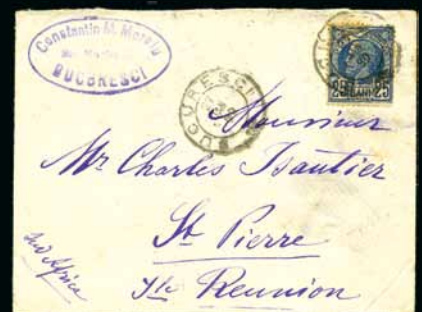 Constantin M.
BUCURESCI
BUCURESCI
25 25
Monsieur
Mr Charles Isautier
St Pierre
Ile Reunion
Sud Africa